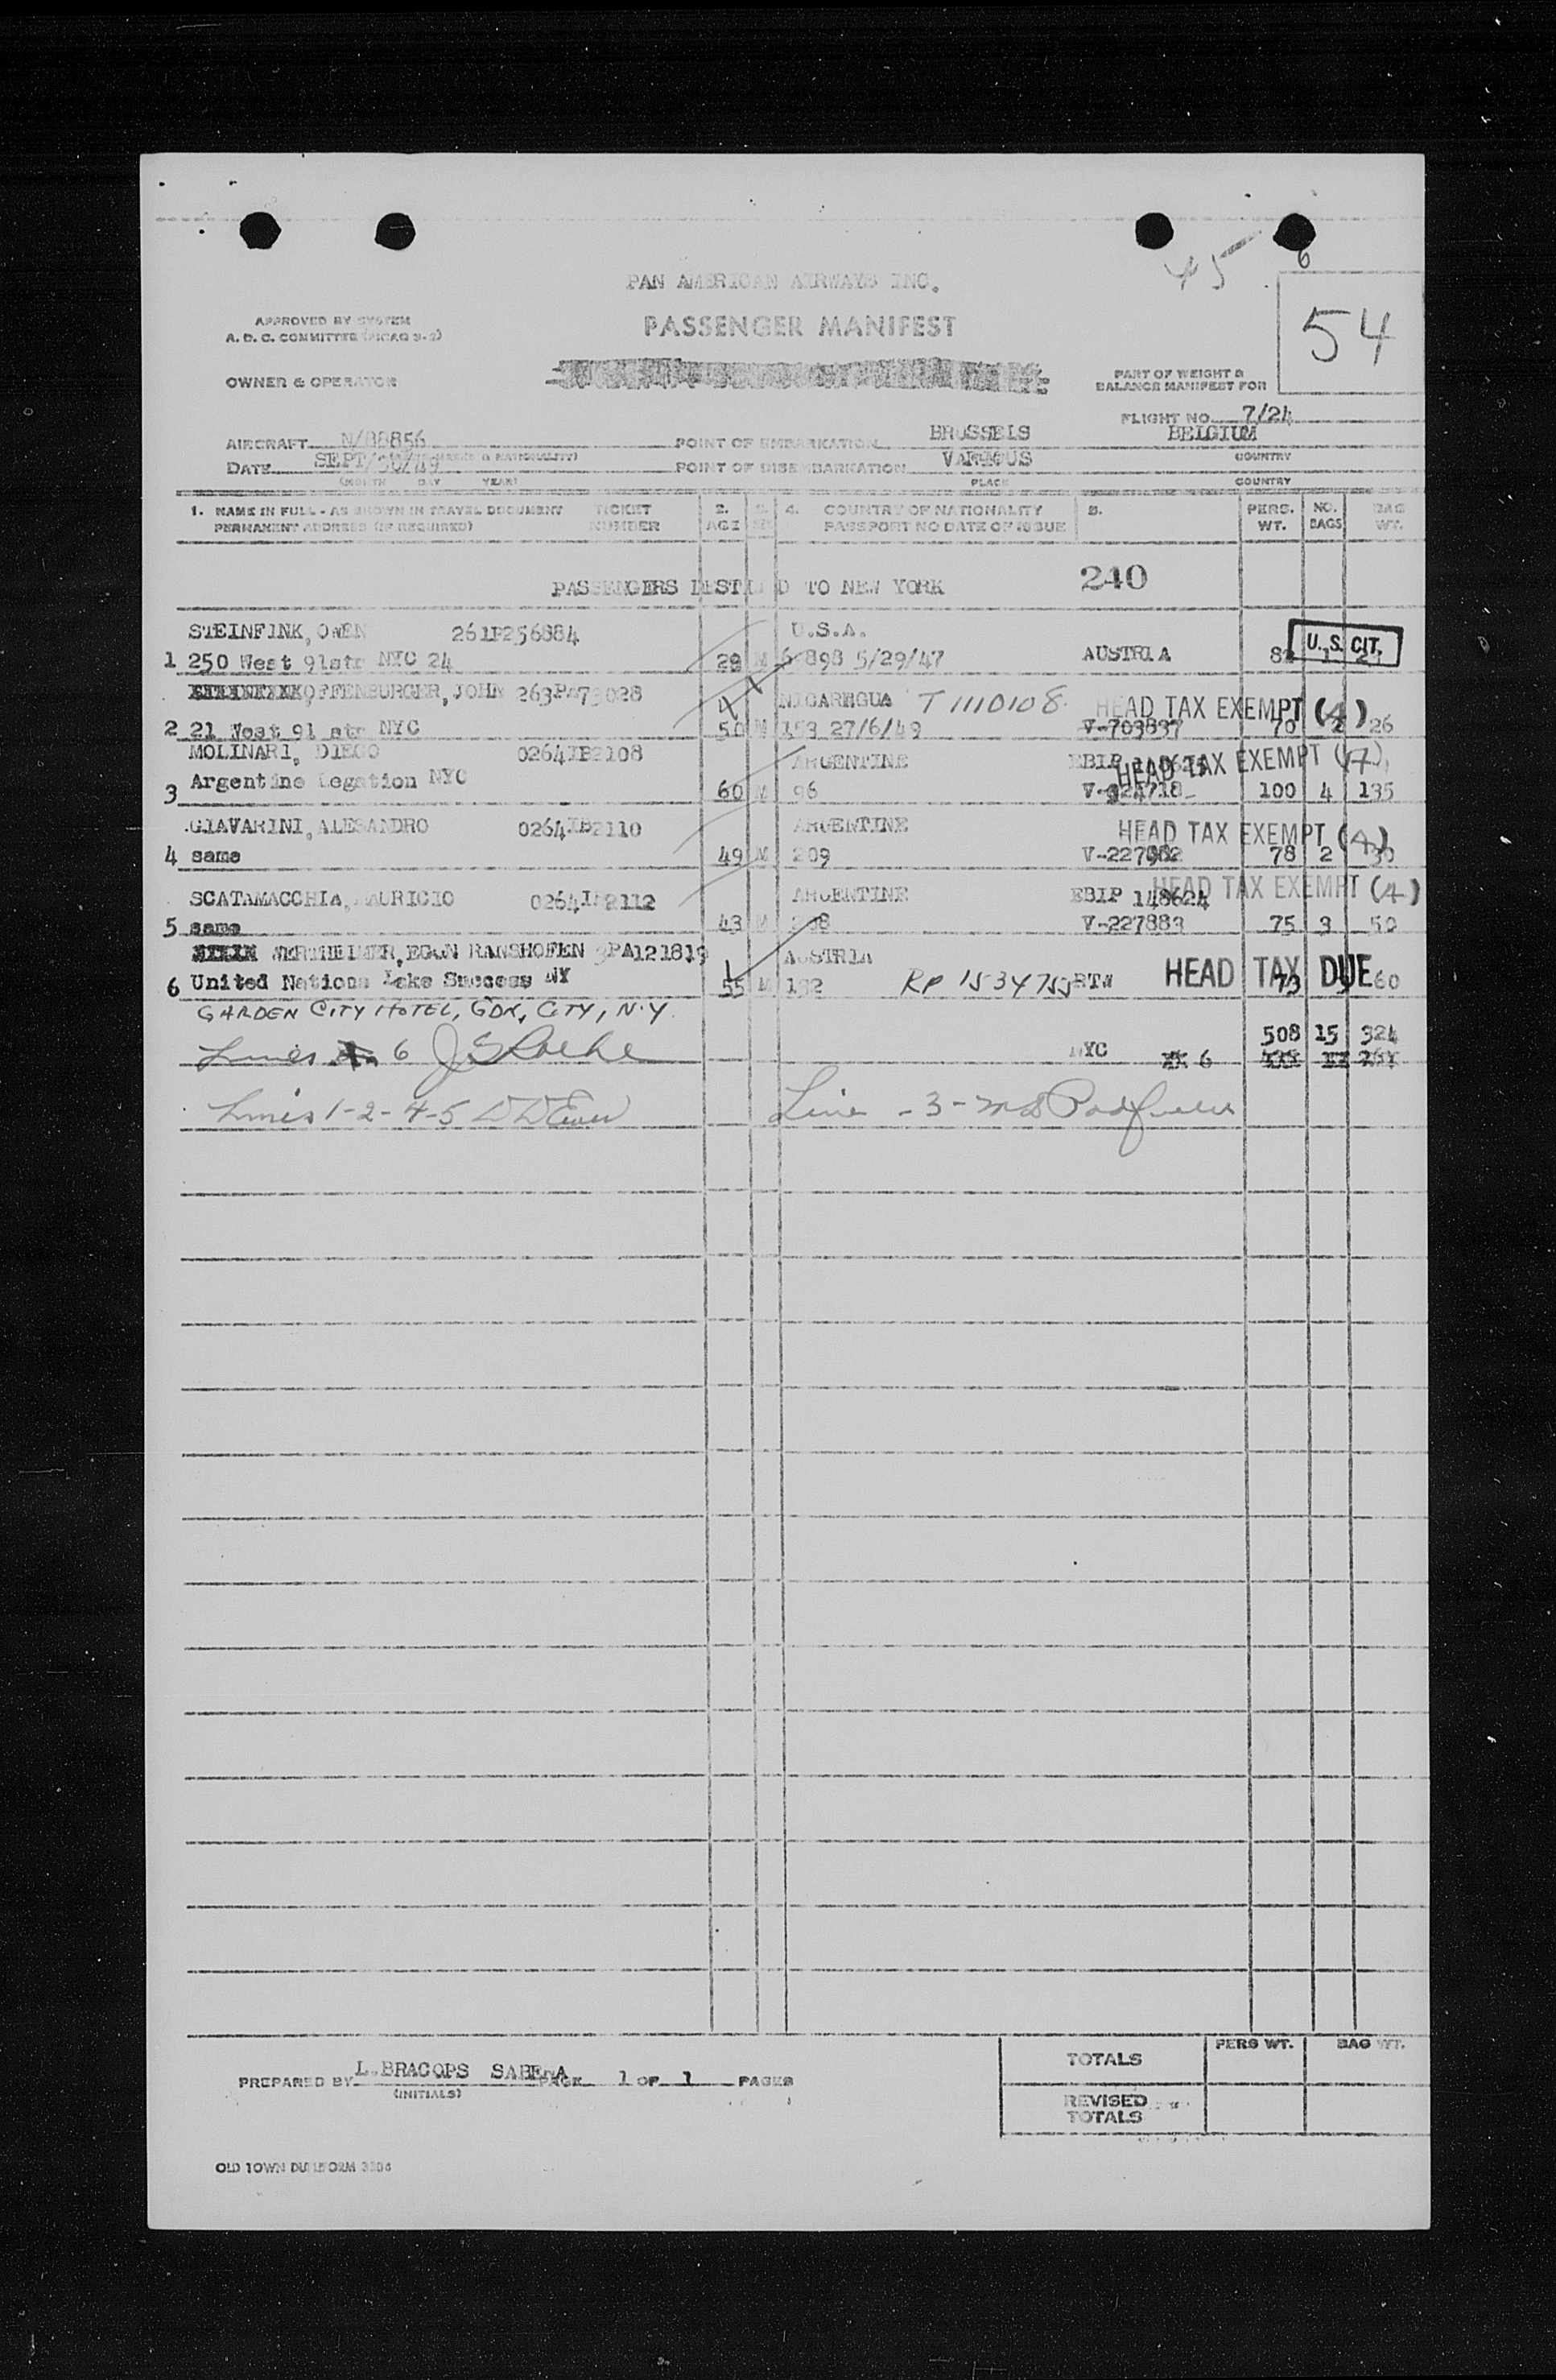 45 6
PAN AMERICAN AIRWAYS INC.
54
APPROVED BY SYSTEM
A. D. C. COMMITTEE (PICAO 9-2)
PASSENGER MANIFEST
OWNER & OPERATOR
PART OF WEIGHT &
BALANCE MANIFEST FOR
FLIGHT NO. 7/24
AIRCRAFT N/88856 POINT OF EMBARKATION BRUSSELS BELGIUM
(MARKS & NATIONALITY) COUNTRY
DATE SEPT/30/49 POINT OF DISEMBARKATION VARIOUS
(MONTH DAY YEAR) PLACE COUNTRY
1. NAME IN FULL - AS SHOWN IN TRAVEL DOCUMENT TICKET 2. 3. 4. COUNTRY OF NATIONALITY 5. PERS. NO. BAG
PERMANENT ADDRESS (IF REQUIRED) NUMBER AGE SEX PASSPORT NO DATE OF ISSUE WT. BAGS WT.
PASSENGERS DESTINED TO NEW YORK 240
STEINFINK, OWEN 261P256884 U.S.A. U.S. CIT.
1 250 West 91str NYC 24 29 M 898 5/29/47 AUSTRIA
OFFENBURGER, JOHN NICAREGUA T 1110108 HEAD TAX EXEMPT (4)
2 21 West 91 str NYC 50 M 153 27/6/49 V-703837 70 2 26
MOLINARI, DIEGO 0264IB2108 ARGENTINE EBIP HEAD TAX EXEMPT
3 Argentine Legation NYC 60 M 96 100 4 135
GIAVARINI, ALESANDRO 0264IB2110 ARGENTINE HEAD TAX EXEMPT (4)
4 same 49 M 209 78 2 30
SCATAMACCHIA, MAURICIO 0264IB2112 ARGENTINE EBIP 148624 HEAD TAX EXEMPT (4)
5 same 43 M 208 V-227883 75 3 50
WERTHEIMER, EGON RANSHOFEN 3PA121819 AUSTRIA
6 United Nations Lake Success NY 55 M 132 RP RTW HEAD TAX DUE 73 3 60
GARDEN CITY HOTEL, GDN, CITY, N.Y.
508 15 324
Lines 6 NYC 6
Lines 1-2-4-5 Line -3-
PREPARED BY L.BRACOPS SABENA PAGE 1 OF 1 PAGES
(INITIALS)
PERS WT. BAG WT.
TOTALS
REVISED
TOTALS
OLD TOWN DUPLIFORM